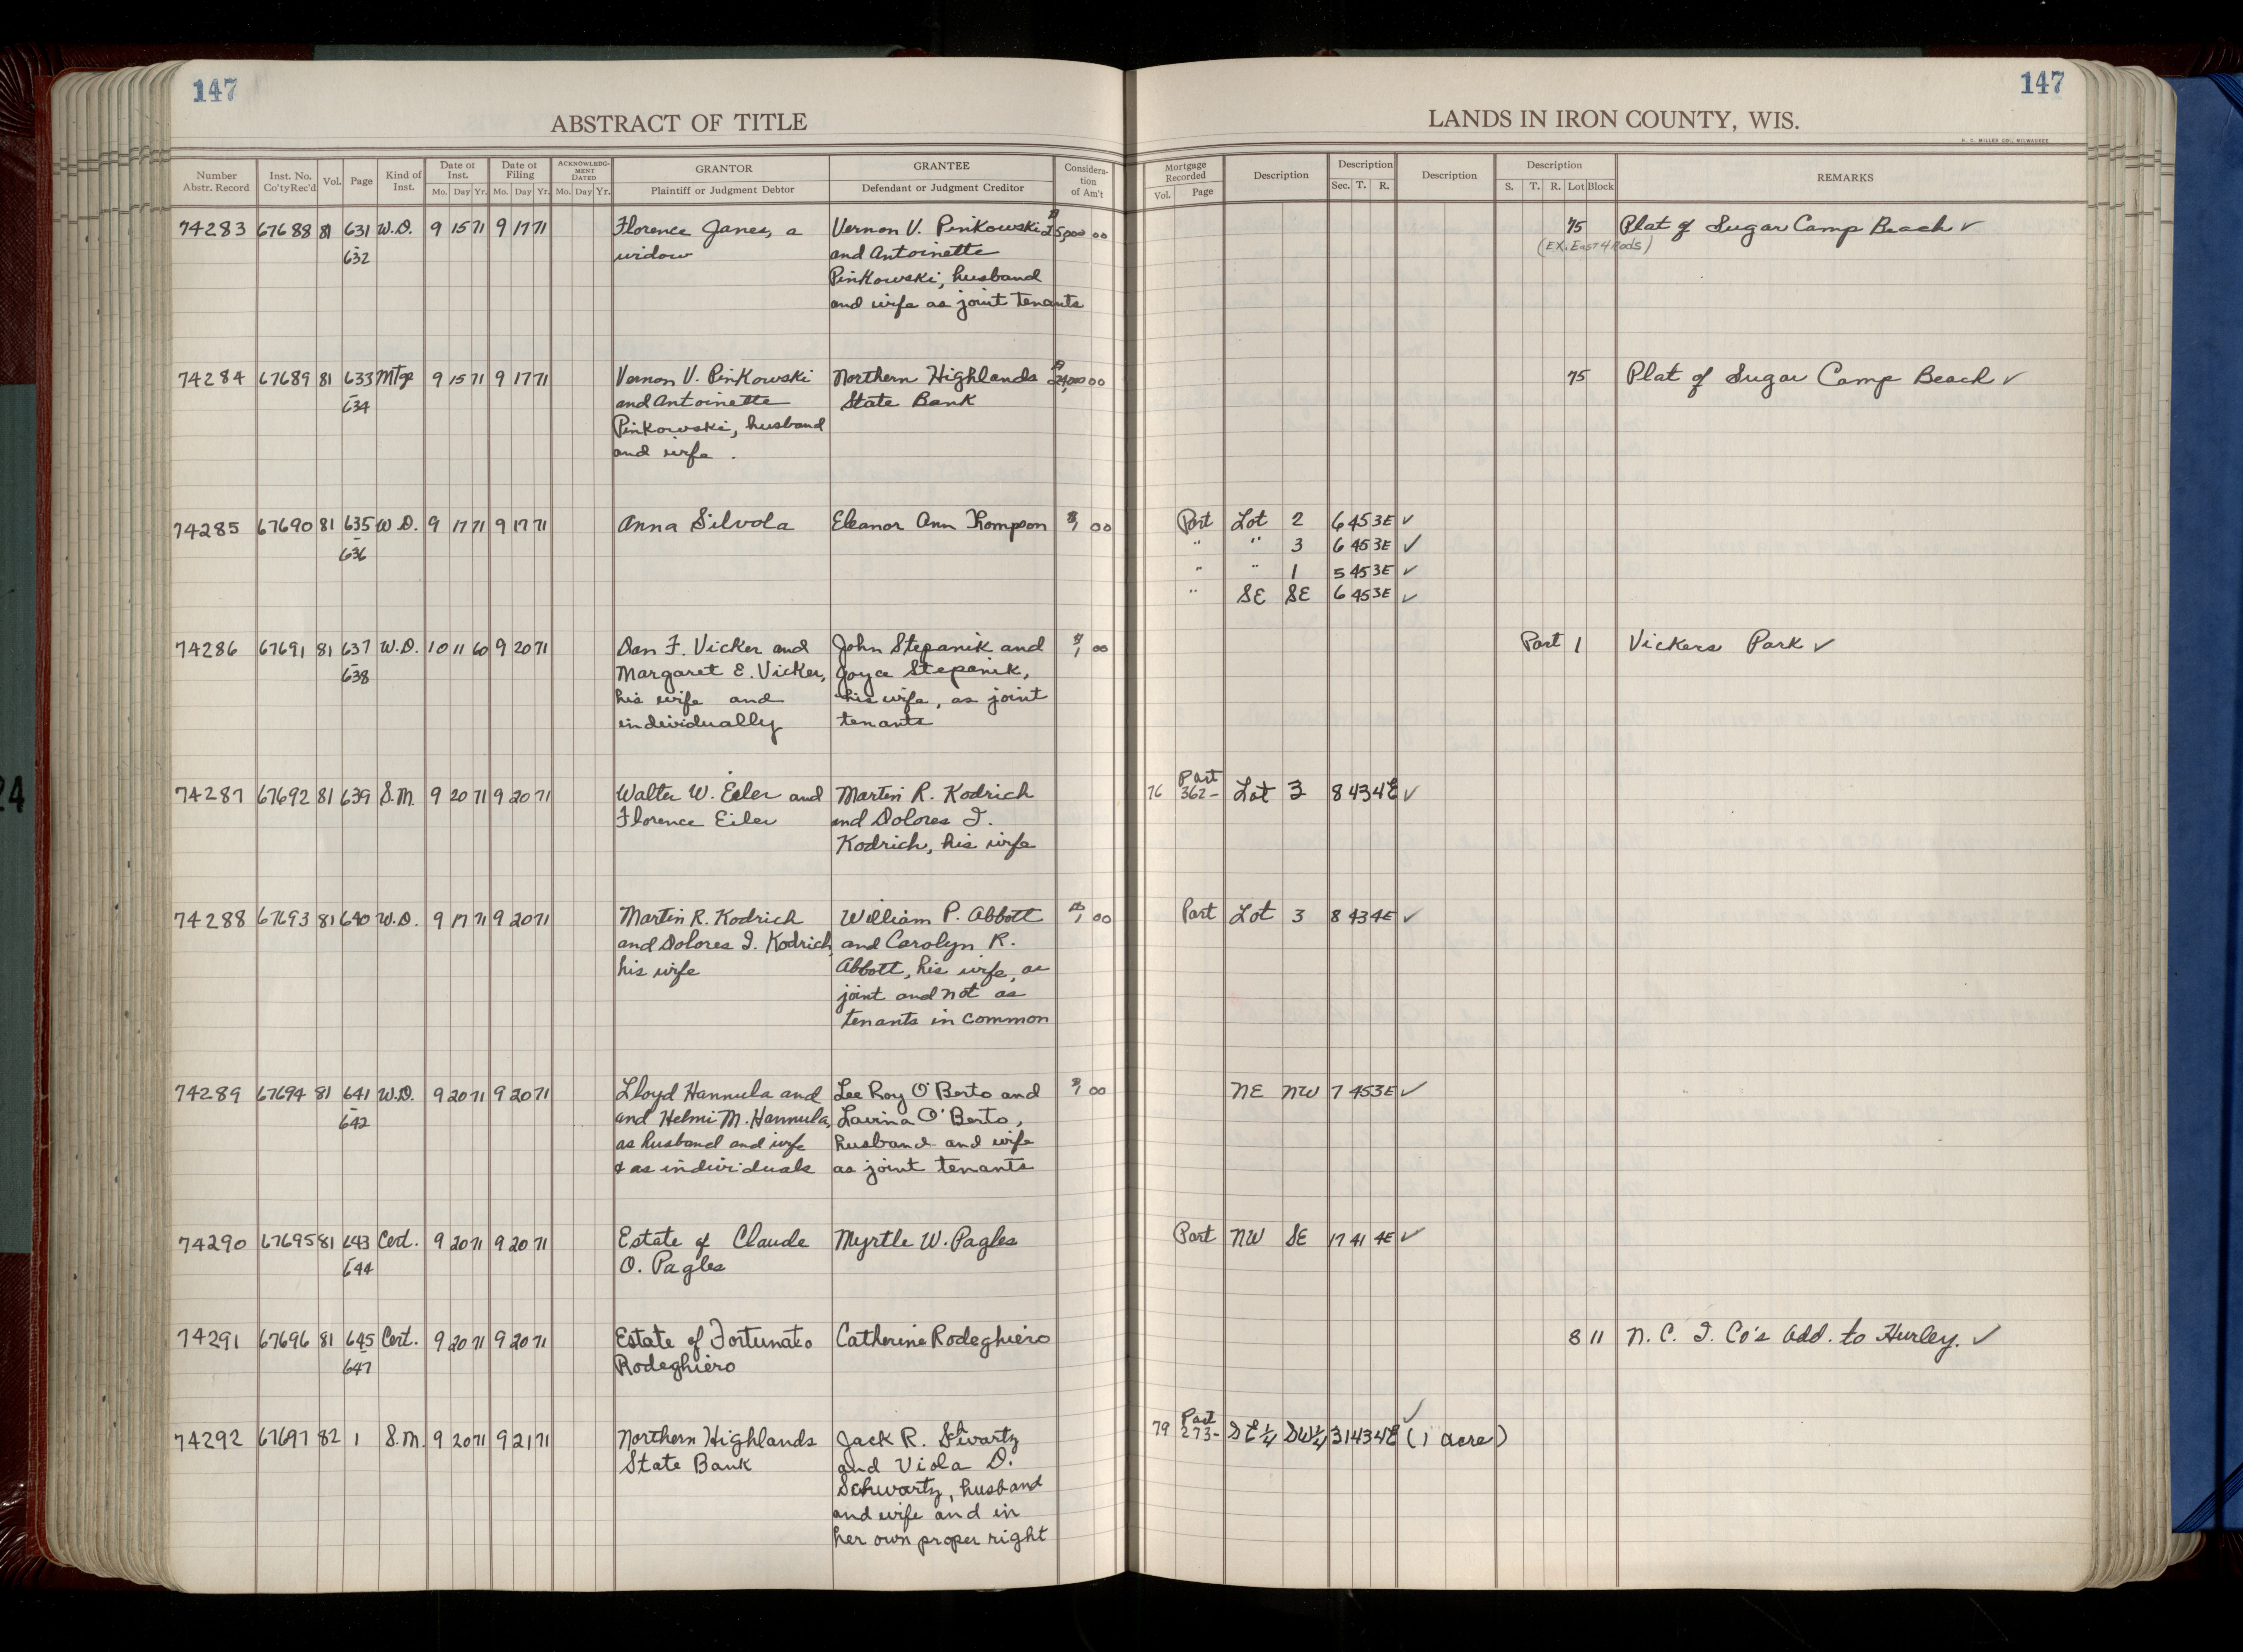 147
147
ABSTRACT OF TITLE
LANDS IN IRON COUNTY, WIS.
H. C. MILLER CO., MILWAUKEE
Number Abstr. Record | Inst. No. Co'ty Rec'd | Vol. | Page | Kind of Inst. | Date of Inst. Mo. Day Yr. | Date of Filing Mo. Day Yr. | ACKNOWLEDGMENT DATED Mo. Day Yr. | GRANTOR Plaintiff or Judgment Debtor | GRANTEE Defendant or Judgment Creditor | Consideration of Am't | Mortgage Recorded Vol. Page | Description | Description Sec. T. R. | Description | Description S. T. R. Lot Block | REMARKS
74283 67688 81 631 W.D. 9 15 71 9 17 71 Florence Janes, a Vernon V. Pinkowski $25,000 00 75 Plat of Sugar Camp Beach ✓
- 632 widow and Antoinette (EX. East 4 Rods)
Pinkowski, husband
and wife as joint tenants
74284 67689 81 633 Mtge 9 15 71 9 17 71 Vernon V. Pinkowski Northern Highlands $24,000 00 75 Plat of Sugar Camp Beach ✓
- 634 and Antoinette State Bank
Pinkowski, husband
and wife.
74285 67690 81 635 W.D. 9 17 71 9 17 71 Anna Silvola Eleanor Ann Thompson $1 00 Part Lot 2 6 45 3E ✓
- 636 " " 3 6 45 3E ✓
" " 1 5 45 3E ✓
" SE SE 6 45 3E ✓
74286 67691 81 637 W.D. 10 11 60 9 20 71 Dan F. Vicker and John Stepanik and $1 00 Part 1 Vickers Park ✓
- 638 Margaret E. Vicker, Joyce Stepanik,
his wife and his wife, as joint
individually tenants
74287 67692 81 639 S.M. 9 20 71 9 20 71 Walter W. Eiler and Martin R. Kodrich 76 Part 362- Lot 3 8 43 4E ✓
Florence Eiler and Dolores I.
Kodrich, his wife
74288 67693 81 640 W.D. 9 17 71 9 20 71 Martin R. Kodrich William P. Abbott $1 00 Part Lot 3 8 43 4E ✓
and Dolores I. Kodrich, and Carolyn R.
his wife Abbott, his wife, as
joint and not as
tenants in common
74289 67694 81 641 W.D. 9 20 71 9 20 71 Lloyd Hannula and Lee Roy O'Berto and $1 00 NE NW 7 45 3E ✓
- 642 and Helmi M. Hannula, Lavina O'Berto,
as husband and wife husband and wife
& as individuals as joint tenants
74290 67695 81 643 Cert. 9 20 71 9 20 71 Estate of Claude Myrtle W. Pagles Part NW SE 17 41 4E ✓
- 644 O. Pagles
74291 67696 81 645 Cert. 9 20 71 9 20 71 Estate of Fortunato Catherine Rodeghiero 8 11 N. C. I. Co's Add. to Hurley. ✓
- 647 Rodeghiero
74292 67697 82 1 S.M. 9 20 71 9 21 71 Northern Highlands Jack R. Schwartz 79 Part 273- SE¼ SW¼ 31 43 4E ✓ (1 acre)
State Bank and Viola D.
Schwartz, husband
and wife and in
her own proper right